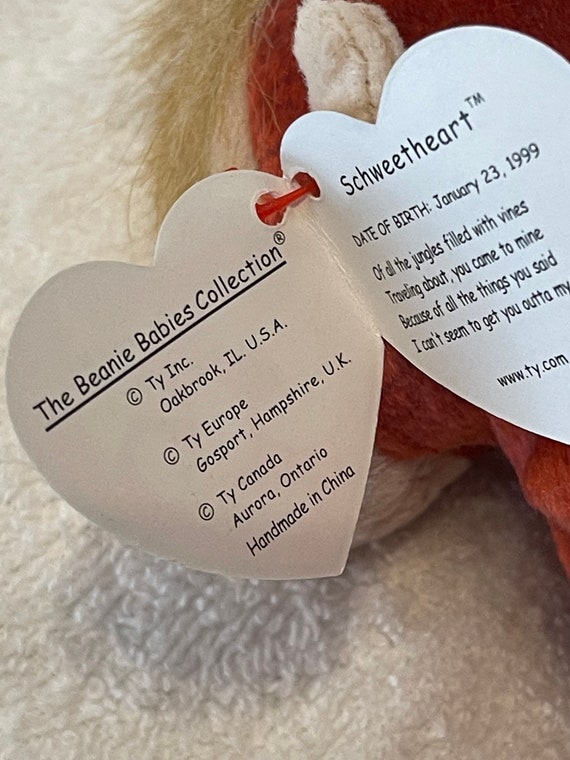 The Beanie Babies Collection®
© Ty Inc.
Oakbrook, IL. U.S.A.
© Ty Europe
Gosport, Hampshire, U.K.
© Ty Canada
Aurora, Ontario
Handmade in China
Schweetheart™
DATE OF BIRTH: January 23, 1999
Of all the jungles filled with vines
Traveling about, you came to mine
Because of all the things you said
I can't seem to get you outta my
www.ty.com